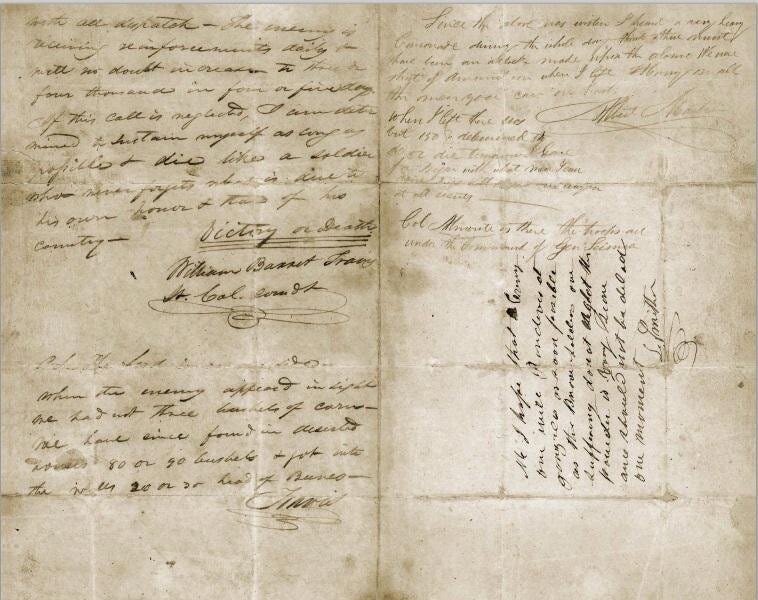 with all dispatch — The enemy is
receiving reinforcements daily &
will no doubt increase to three or
four thousand in four or five days.
If this call is neglected, I am deter
mined to sustain myself as long as
possible & die like a soldier
who never forgets what is due to
his own honor & that of his
country —
Victory or Death
William Barret Travis
Lt. Col. comdt
P.S. The Lord is on our side
When the enemy appeared in sight
we had not three bushels of corn —
we have since found in deserted
houses 80 or 90 bushels & got into
the walls 20 or 30 head of Beeves —
Travis
Since the above was written I heard a very heavy
Cannonade during the whole day think there must
have been an attack made upon the alamo We were
short of Ammunition when I left Hurry on all
the men you can
Albert Martin
When I left there was
but 150 determined to
do or die tomorrow I leave
for with what men I can
at all events
Col Almonte is there the troops are
under the Command of Gen Seisma
Nb I hope that Every
one will Randeves at
gonzales as soon poseble
as the Brave soldiers are
suffering do not neglect the
powder is very scarce
and should not be delad
one moment
L. Smither